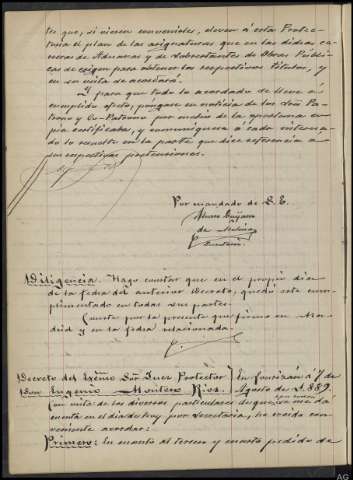 te que, si vieren convenirles, eleven á esta Protec-
toria el plan de las asignaturas que en las dichas ca-
rreras de Aduanas y de Sobrestantes de Obras Públi-
cas se exigen para obtener los respectivos títulos, y
en su vista se acordará.
Y para que todo lo acordado se lleve á
cumplido efecto, póngase en noticia de los Sres Pa-
trono y Co-Patrono por medio de la oportuna co-
pia certificada, y comuníquese á cada interesa-
do lo resuelto en la parte que dice referencia á
sus respectivas pretensiones.
Por mandado de S. E.
de
Diligencia. Hago constar que en el propio dia
de la fecha del anterior Decreto, quedó este cum-
plimentado en todas sus partes.
Conste por la presente que firmo en Ma-
drid y en la fecha relacionada.
Decreto del Excmo Sôr Juez Protector
Don Eugenio Montero Rios.
En Lourizán á 7 de
Agosto de 1.889.
En vista de los diversos particulares de que, se me da
cuenta en el dia de hoy por Secretaría, he creido con-
veniente acordar:
Primero: En cuanto al tercero y cuarto pedido de
AG